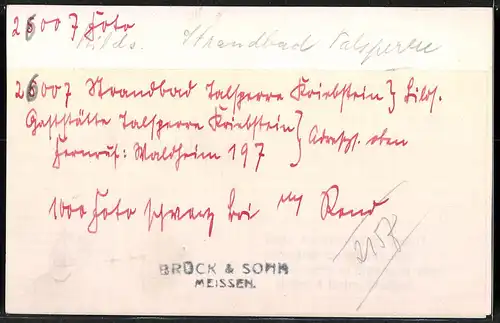 26007 Foto
Bilds. Strandbad Talsperre
26007 Strandbad Talsperre Kriebstein } Bilds.
Gaststätte Talsperre Kriebstein } Adresss. oben
Fernruf: Waldheim 197
1000 Foto schwarz bei m/ Rand
2157
BRÜCK & SOHN
MEISSEN.